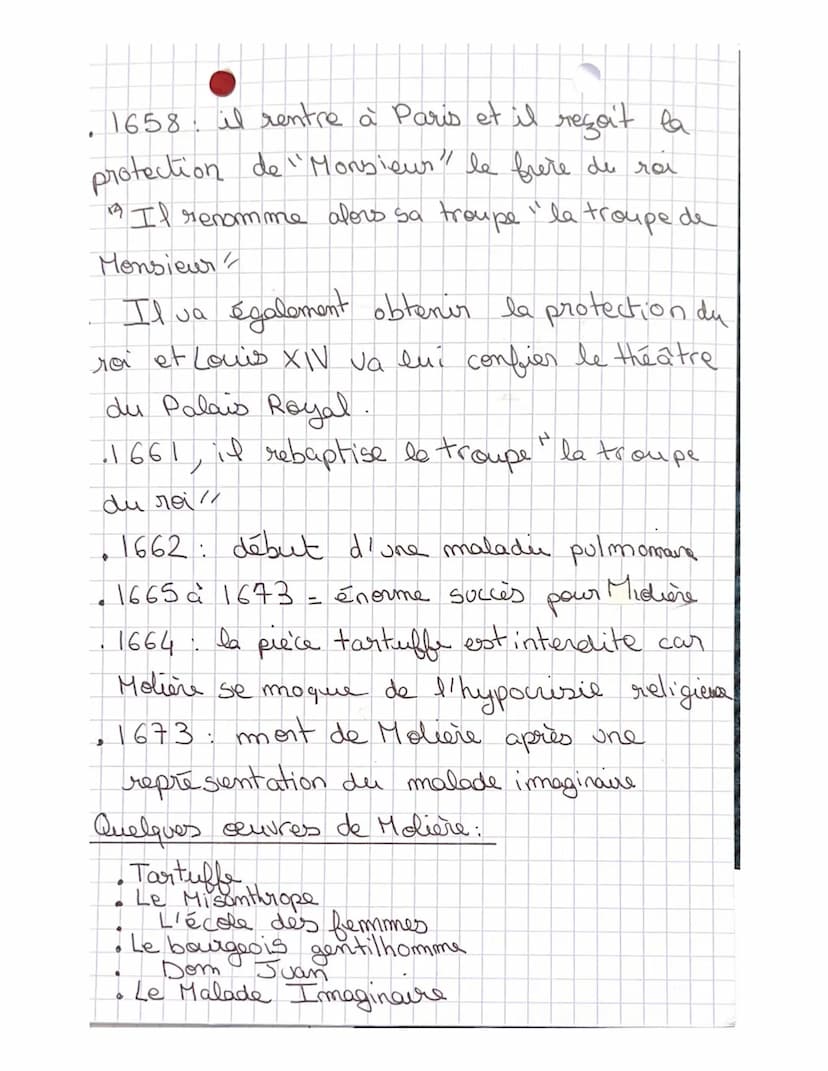 . 1658 : il rentre à Paris et il reçoit la
protection de "Monsieur" le frère du roi
Il renomme alors sa troupe "la troupe de
Monsieur"
. Il va également obtenir la protection du
roi et Louis XIV va lui confier le théâtre
du Palais Royal.
. 1661, il rebaptise le troupe "la troupe
du roi"
. 1662 : début d'une maladie pulmonaire
. 1665 à 1673 = énorme succès pour Molière
. 1664 : la pièce tartuffe est interdite car
Molière se moque de l'hypocrisie religieuse
. 1673 : mort de Molière après une
représentation du malade imaginaire
Quelques œuvres de Molière :
. Tartuffe
. Le Misanthrope
. L'école des femmes
. Le bourgeois gentilhomme
. Dom Juan
. Le Malade Imaginaire